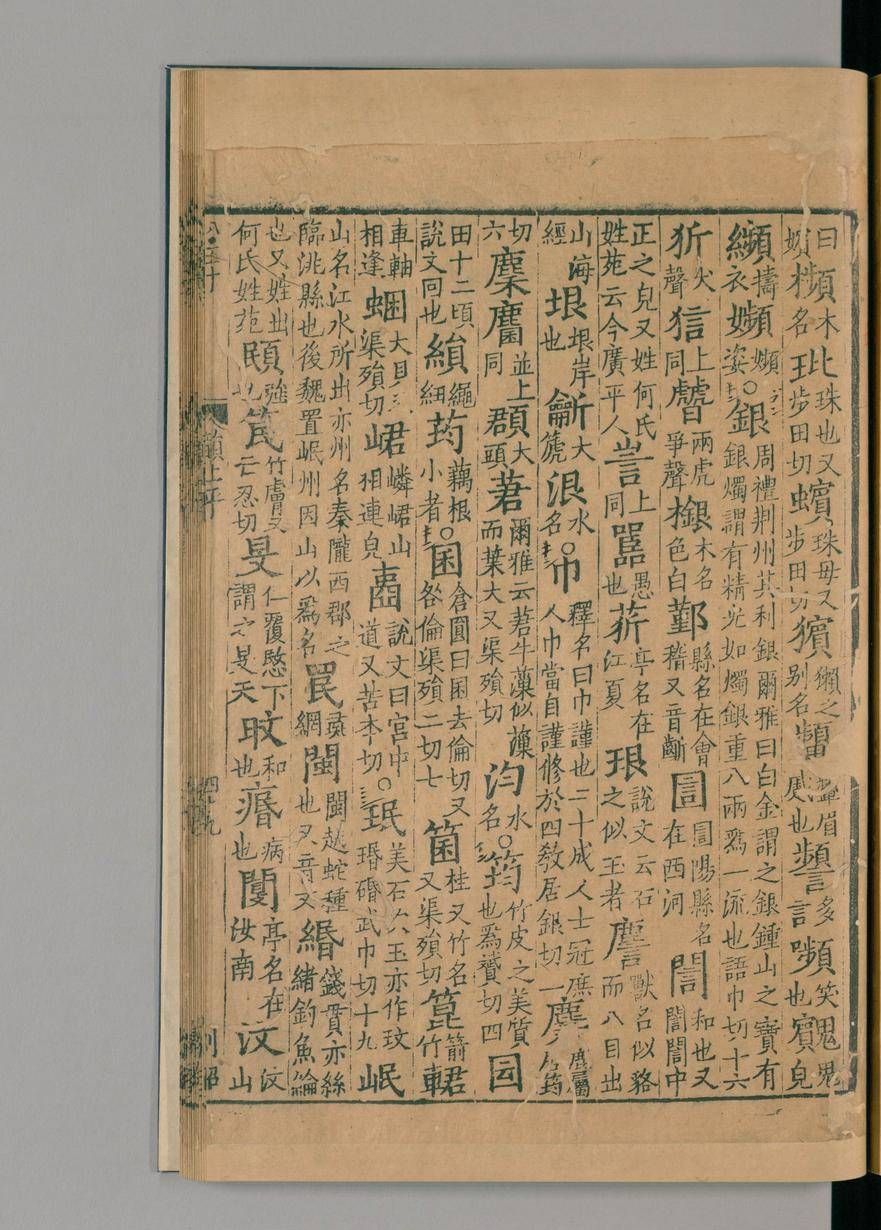 曰嬪木名玭珠也又步田切蠙珠母又步田切獱獺之別名顰顰眉蹙也多言也嚬笑也鬼皃
擣衣姿○銀周禮荊州其利銀爾雅曰白金謂之銀鍾山之寶有銀燭謂有精光如燭銀重八兩爲一流也語巾切十六
犾犬聲狺上同兩虎爭聲檭木名色白鄞縣名在會稽又音齗圁圁陽縣名在西河誾和也又誾誾中
正之皃又姓何氏姓苑云今廣平人訔上同嚚愚也亭名在江夏珢說文云石之似玉者獸名似貉而八目出
山海經垠垠岸也大箎泿水名○巾釋名曰巾謹也二十成人士冠庶人巾當自謹修於四敎居銀切一麏麏屬居筠
切六麇麕並上同頵大頭莙爾雅云莙牛薻似薻而葉大又渠殞切汮水名○筠竹皮之美質也爲贇切四囩
田十二頃說文回也縜繩紐荺藕根小者○囷倉圓曰囷去倫切又咎倫渠殞二切七箘桂又竹名又渠殞切箟箭竹輑
車軸相逢蜠大貝又渠殞切峮嶙峮山相連皃說文曰宮中道又苦本切○珉美石次玉亦作玟瑉碈武巾切十九岷
山名江水所出亦州名秦隴西郡之臨洮縣也後魏置岷州因山以爲名罠彘網閩閩越蛇種也又音文緡錢貫亦絲緒釣魚綸
也又姓出何氏姓苑強也笢竹膚又亡忍切旻仁覆愍下謂之旻天旼和也痻病也亭名在汝南汶汶山
上平
四十九